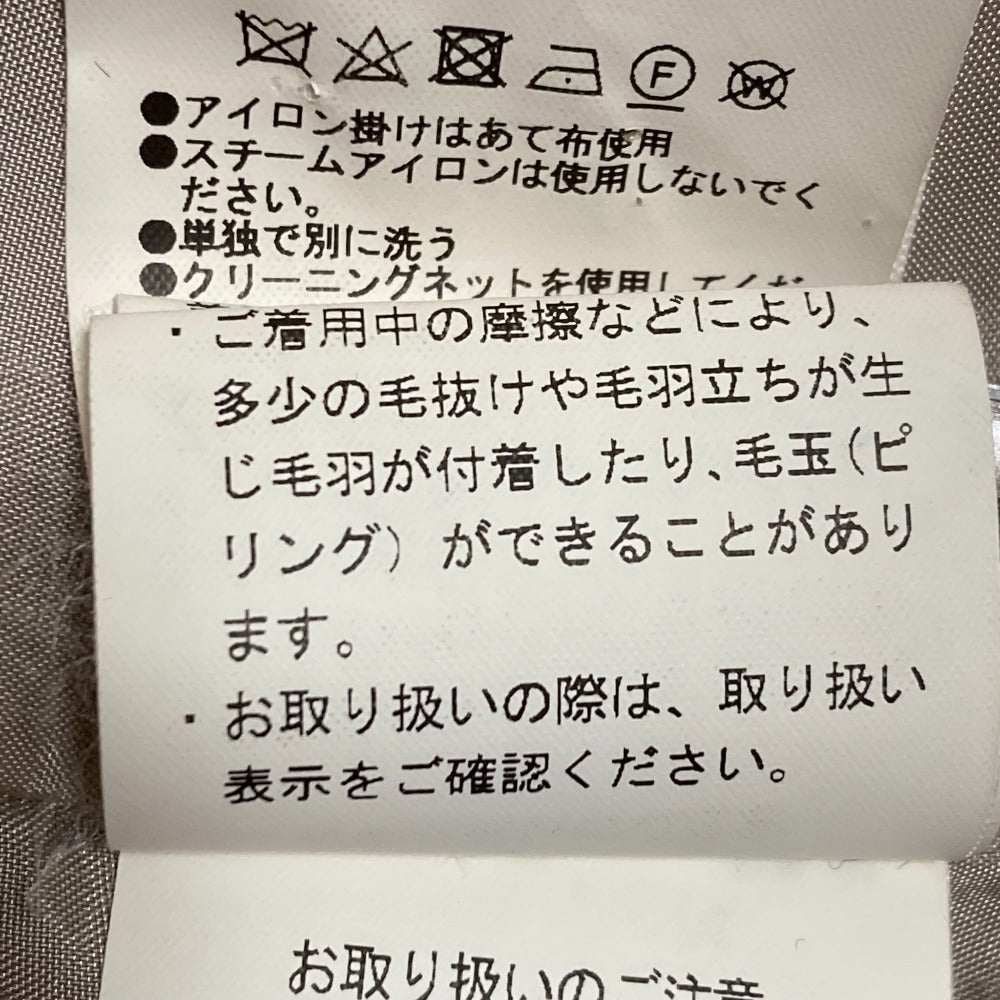 F
W
●アイロン掛けはあて布使用
●スチームアイロンは使用しないでく
ださい。
●単独で別に洗う
●クリーニングネットを使用してくだ
・ご着用中の摩擦などにより、
多少の毛抜けや毛羽立ちが生
じ毛羽が付着したり、毛玉(ピ
リング)ができることがあり
ます。
・お取り扱いの際は、取り扱い
表示をご確認ください。
お取り扱いのご注意